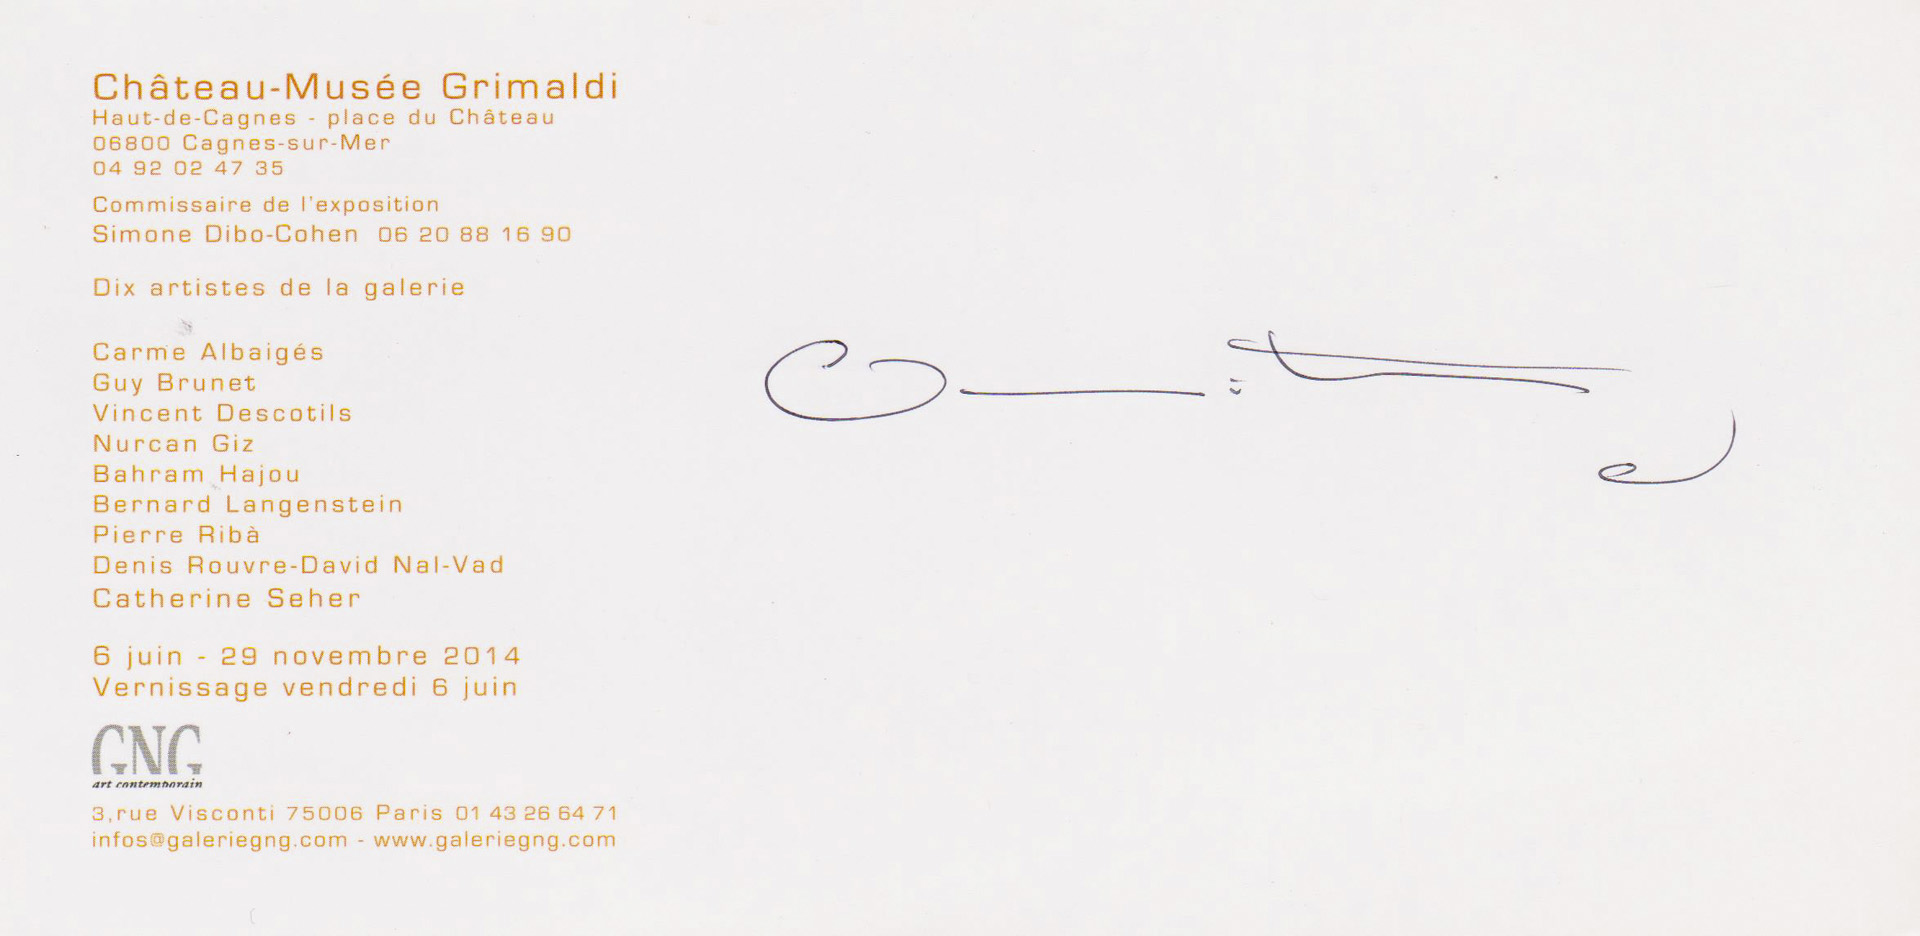 Château-Musée Grimaldi
Haut-de-Cagnes - place du Château
06800 Cagnes-sur-Mer
04 92 02 47 35
Commissaire de l'exposition
Simone Dibo-Cohen 06 20 88 16 90
Dix artistes de la galerie
Carme Albaigés
Guy Brunet
Vincent Descotils
Nurcan Giz
Bahram Hajou
Bernard Langenstein
Pierre Ribà
Denis Rouvre-David Nal-Vad
Catherine Seher
6 juin - 29 novembre 2014
Vernissage vendredi 6 juin
GNG
art contemporain
3,rue Visconti 75006 Paris 01 43 26 64 71
infos@galeriegng.com - www.galeriegng.com